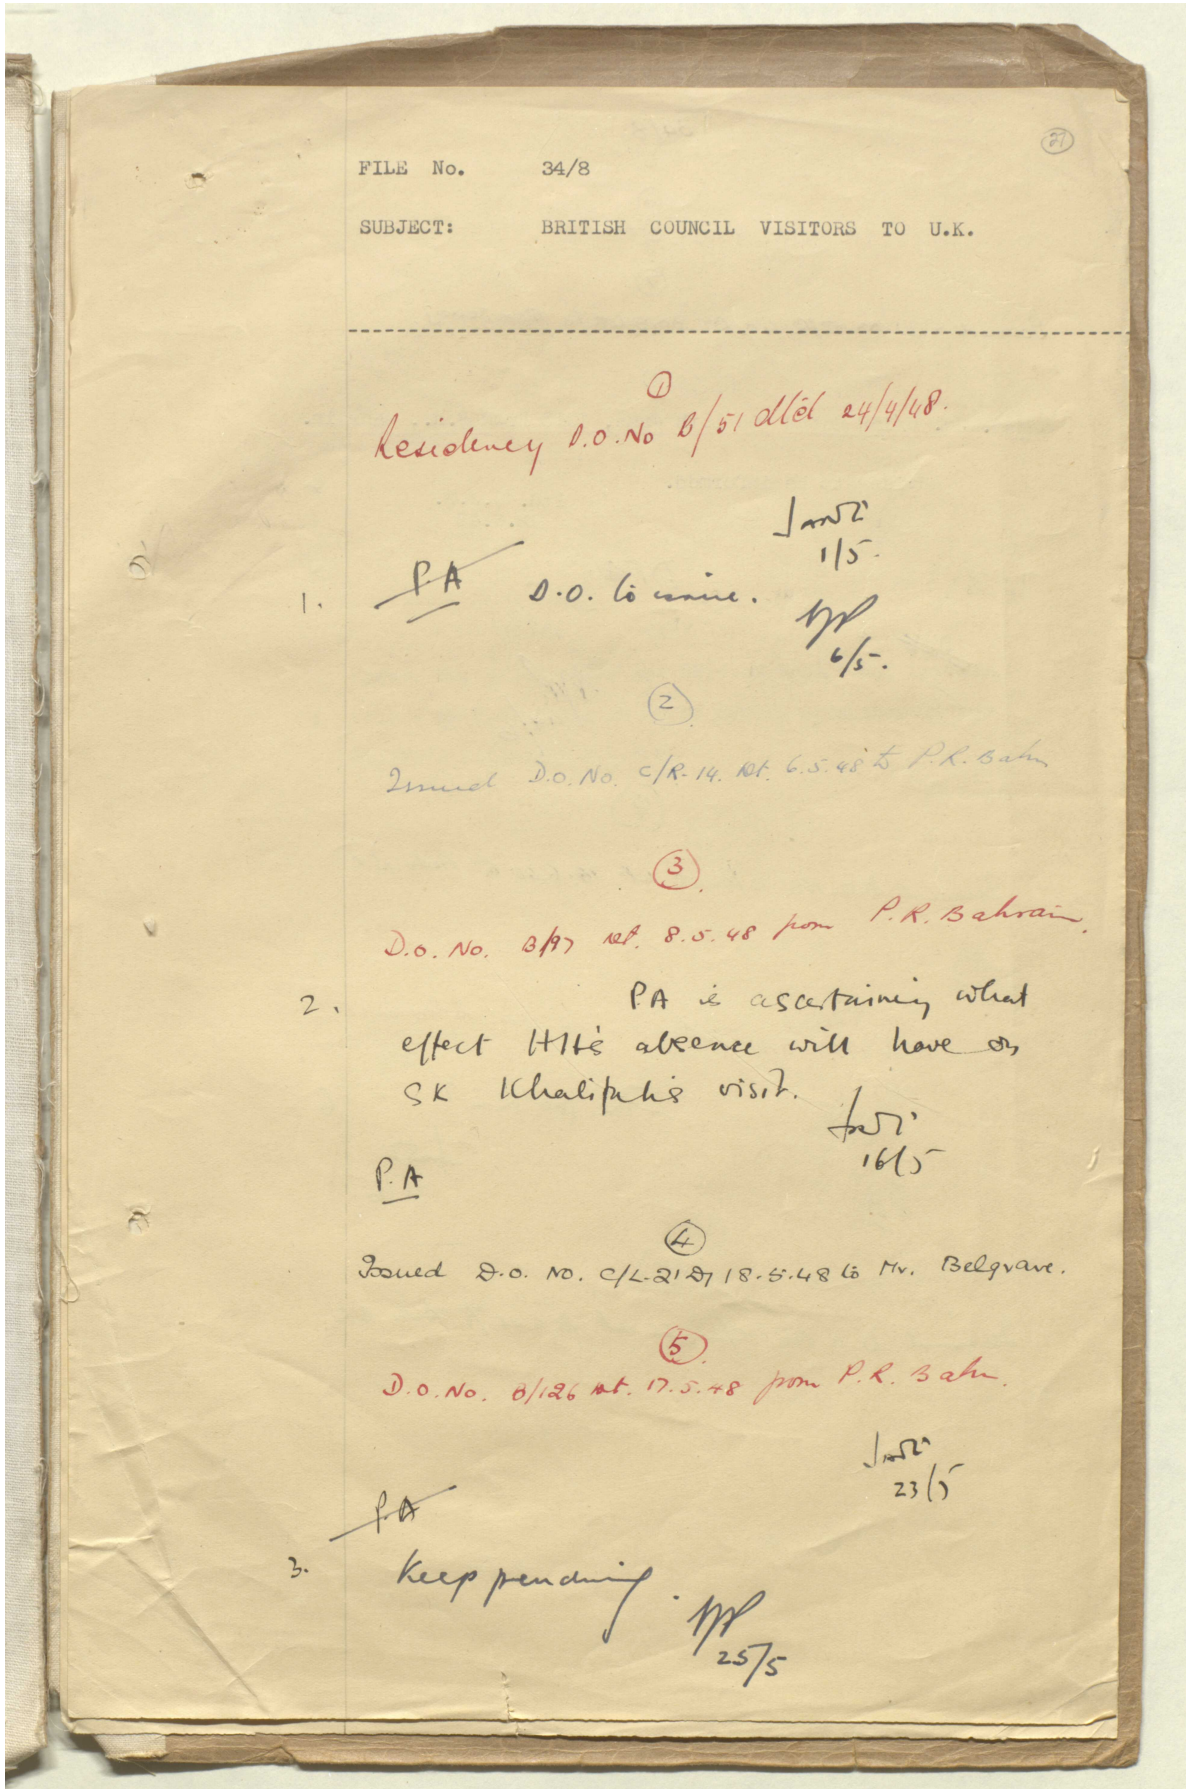 27
FILE No. 34/8
SUBJECT: BRITISH COUNCIL VISITORS TO U.K.
1
Residency D.O. No B/51 dtéd 24/4/48.
1/5.
1. P.A D.O. to issue.
6/5.
2
Issued D.O. No. C/R-14. dt. 6.5.48 to P.R. Bahn
3
D.O. No. B/97 dt. 8.5.48 from P.R. Bahrain.
2. PA is ascertaining what
effect HH's absence will have on
SK Khalifah's visit.
16/5
P.A
4
Issued D.O. No. C/L-21 Dt 18.5.48 to Mr. Belgrave.
5
D.O. No. B/126 dt. 17.5.48 from P.R. Bahn.
23/5
P.A
3. Keep pending.
25/5